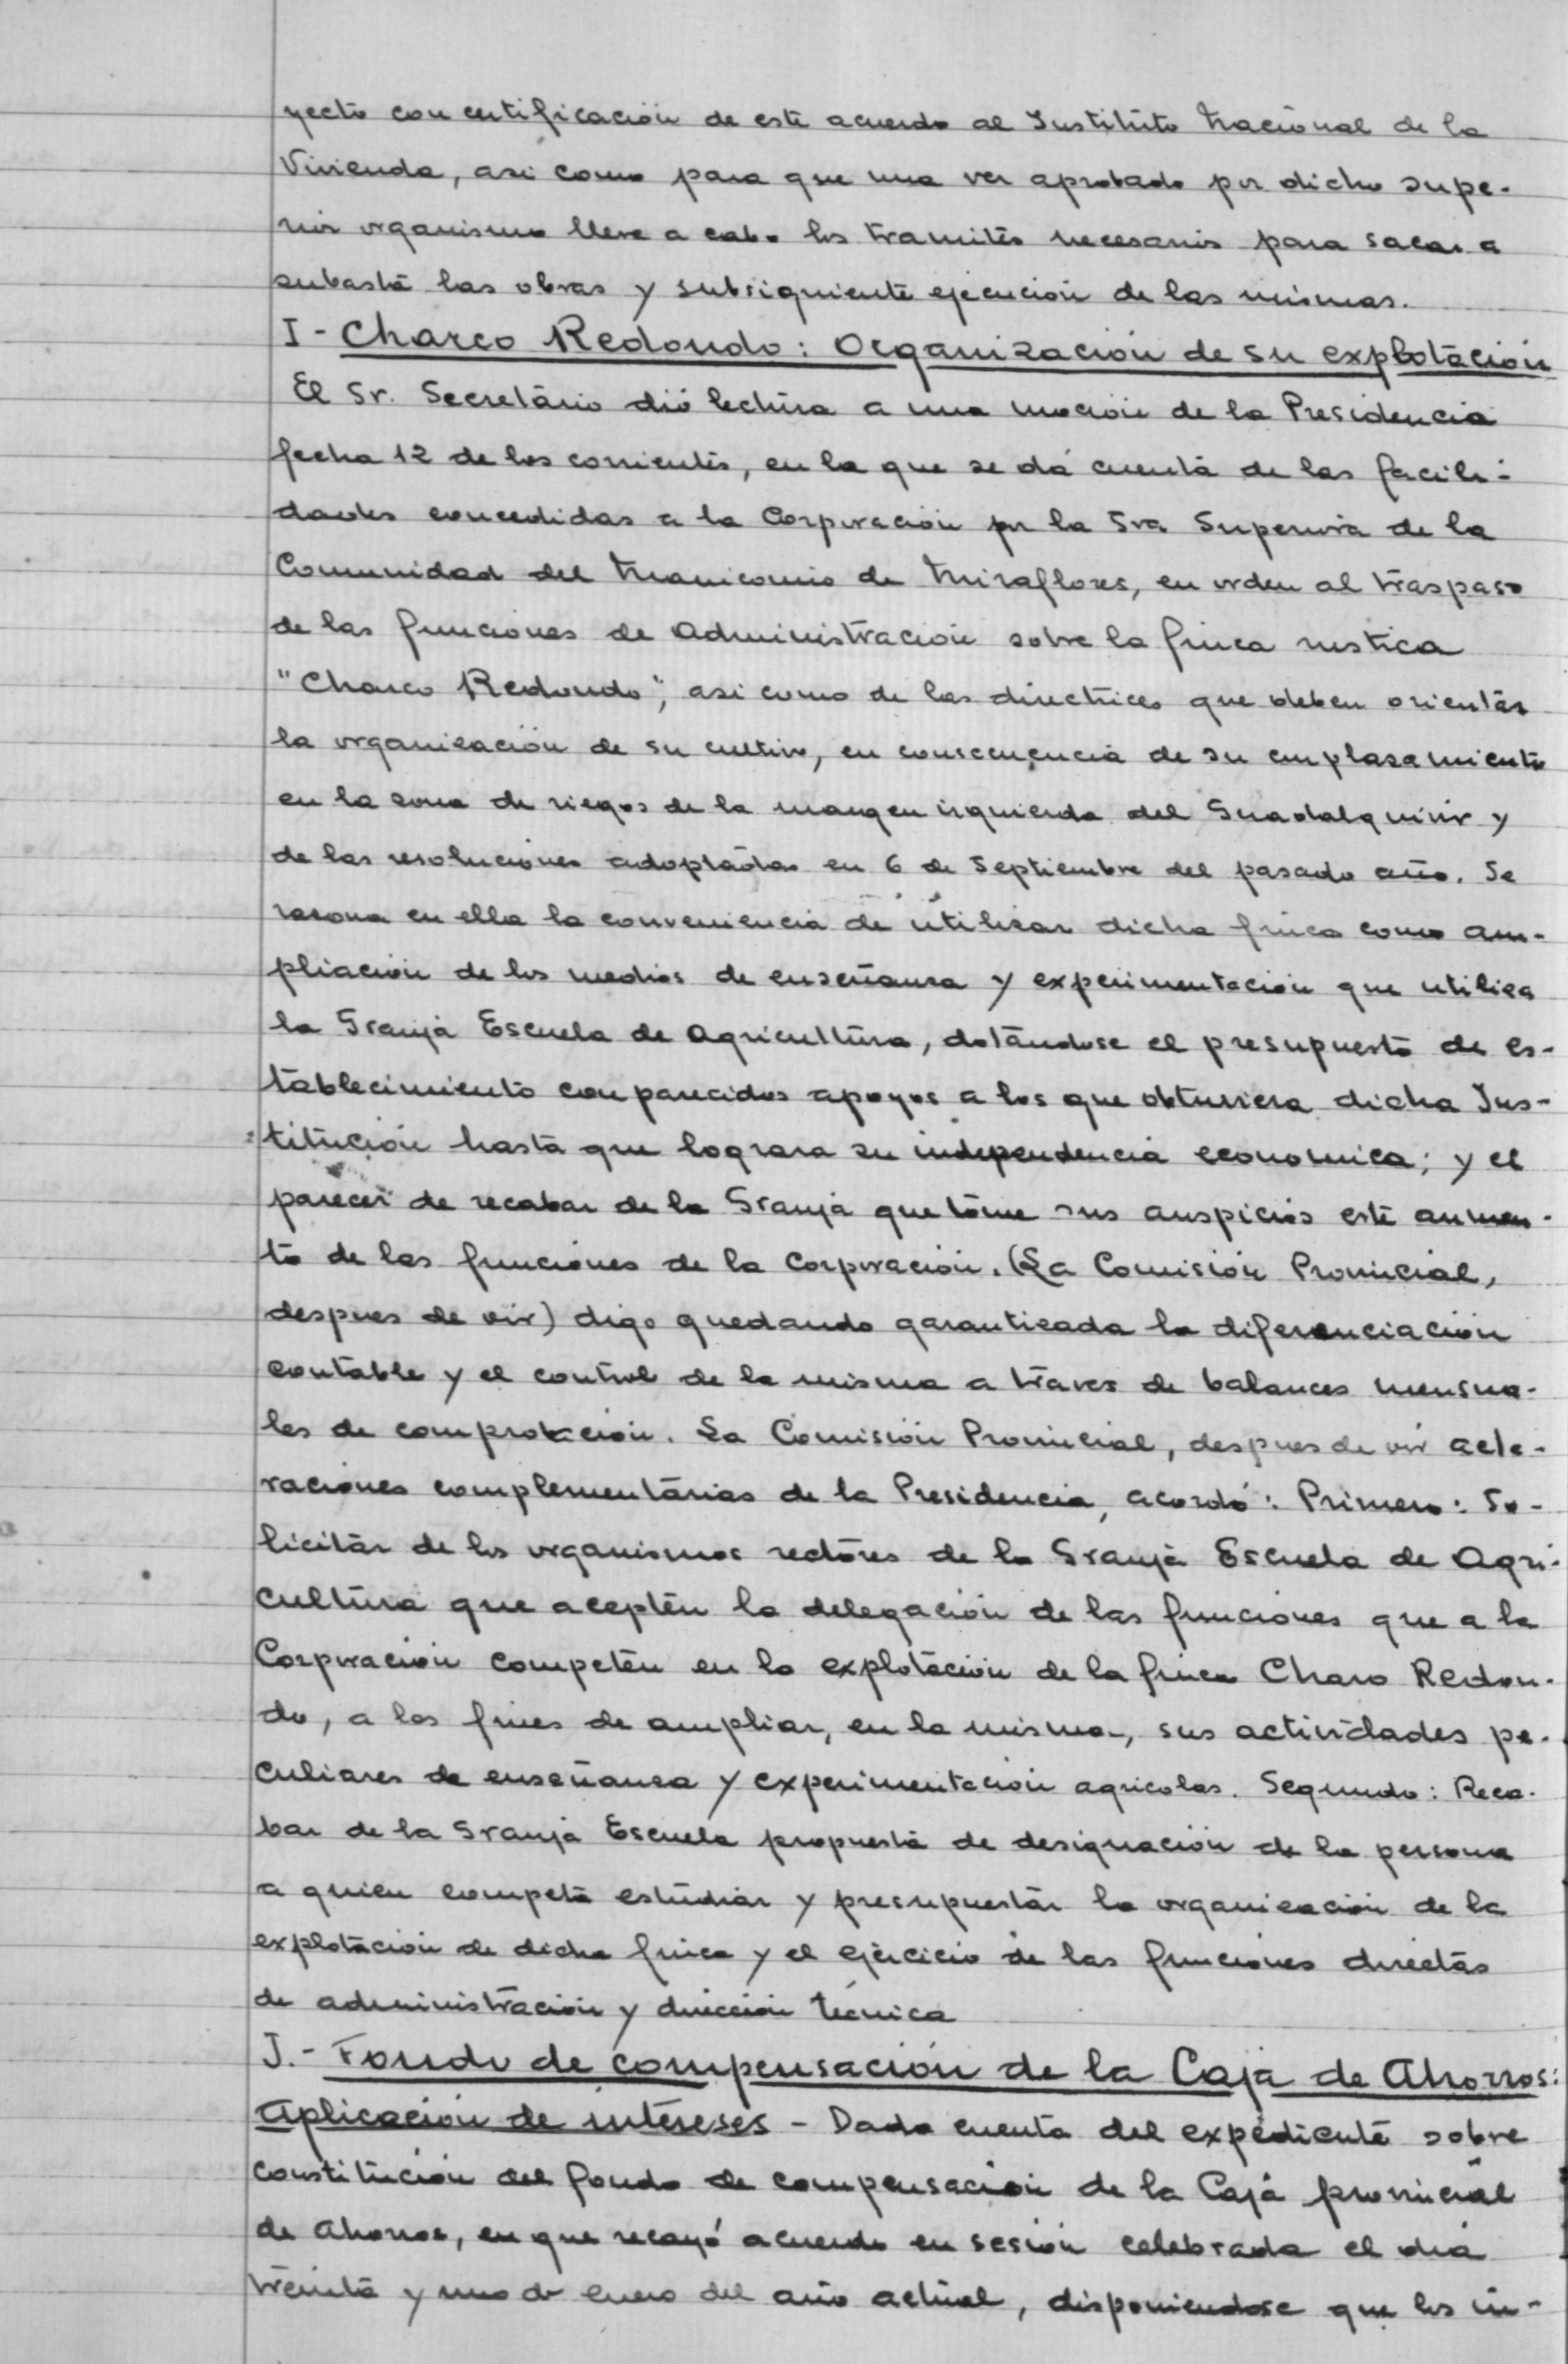 yecto con certificación de este acuerdo al Instituto Nacional de la
Vivienda, asi como para que una vez aprobado por dicho supe-
rior organismo lleve a cabo los tramites necesarios para sacar a
subasta las obras y subsiguiente ejecución de las mismas.
I - Charco Redondo: Organización de su explotación
El Sr. Secretario dió lectura a una moción de la Presidencia
fecha 12 de los corrientes, en la que se dá cuenta de las facili-
dades concedidas a la Corporación por la Sra Superiora de la
Comunidad del Manicomio de Miraflores, en orden al traspaso
de las funciones de Administración sobre la finca rustica
"Charco Redondo", asi como de las directrices que deben orientar
la organización de su cultivo, en consecuencia de su emplazamiento
en la zona de riegos de la margen izquierda del Guadalquivir y
de las resoluciones adoptadas en 6 de Septiembre del pasado año. Se
razona en ella la conveniencia de utilizar dicha finca como am-
pliación de los medios de enseñanza y experimentación que utiliza
la Granja Escuela de Agricultura, dotándose el presupuesto de es-
tablecimiento con parecidos apoyos a los que obtuviera dicha Ins-
titución hasta que lograra su independencia economica; y el
parecer de recabar de la Granja que tome sus auspicios este aumen-
to de las funciones de la Corporación. (La Comisión Provincial,
despues de oir) digo quedando garantizada la diferenciación
contable y el control de la misma a traves de balances mensua-
les de comprobación. La Comisión Provincial, despues de oir acla-
raciones complementarias de la Presidencia, acordó: Primero: So-
licitar de los organismos rectores de la Granja Escuela de Agri-
cultura que acepten la delegación de las funciones que a la
Corporación competen en la explotación de la finca Charo Redon-
do, a los fines de ampliar, en la misma, sus actividades pe-
culiares de enseñanza y experimentación agricolas. Segundo: Reca-
bar de la Granja Escuela propuesta de designación de la persona
a quien competa estudiar y presupuestar la organización de la
explotación de dicha finca y el ejercicio de las funciones directas
de administración y dirección técnica
J.- Fondo de compensación de la Caja de Ahorros:
Aplicación de intereses - Dada cuenta del expediente sobre
constitución del fondo de compensación de la Caja provincial
de Ahorros, en que recayó acuerdo en sesión celebrada el dia
treinta y uno de Enero del año actual, disponiendose que los in-